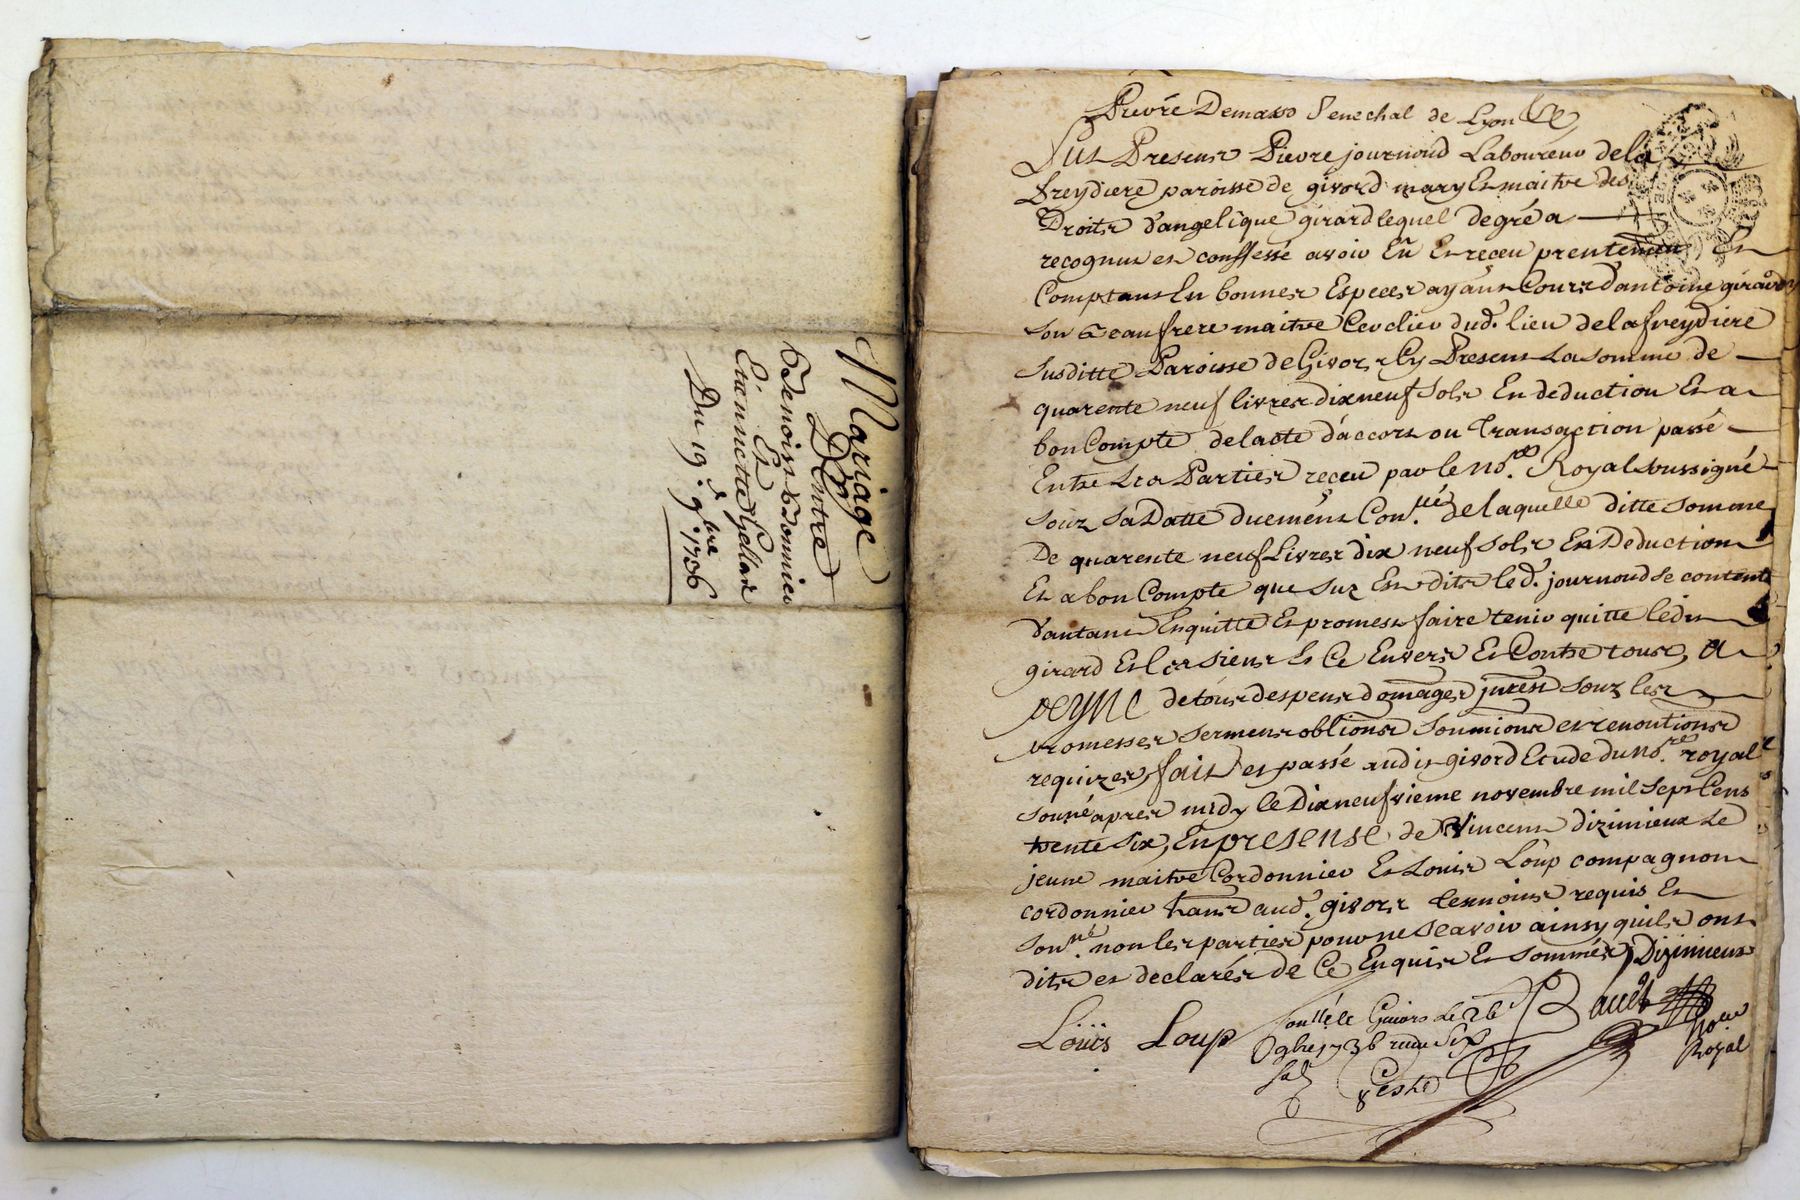 Mariage
Entre
Benoist Bdonnier
Et
Etiennette Gellas
Du 19.e 9bre 1736
Pierre Demasso Senechal de Lyon
Fut Present Pierre journoud Laboureur dela
freydiere paroisse de givord mary Et maitre des
Droits d'angelique girard lequel de gré a
recognu et conffessé avoir Eü Et receu presentement Et
Comptant En bonnes Especes ayant Cours d'antoine girard
son Beaufrere maitre Cerclier dud. lieu dela freydiere
susditte Paroisse de Givors Cy Present La somme de
quarente neuf livres dix neuf sols En deduction Et a
bon Compte delacte d'accort ou Transaction passé
Entre Les Parties receu par le no.re Royal soussigné
souz sa Datte duement Con.llé de laquelle ditte somme
De quarente neuf Livres dix neuf sols En Deduction
Et a bon Compte que sur Est dit le d. journoud se contente
d'autant En quitte Et promest faire tenir quitte ledit
girard Et les siens Et Ce Envers Et Contre tous, A
peyne de tous despens domages jnrest souz les
promesses serment oblions soumions et renontions
requizes, fait et passé audit givord Etude du No.re royal
souné apres midy le Dix neufvieme novembre mil Sept Cens
trente six, En presense de Vincent dizimieux Le
jeune maitre Cordonnier Et Louis Loup compagnon
cordonnier hans aud. givors tesmoins requis Et
son.nés non les parties pour ne scavoir ainsy quils ont
dits et declarés de Ce Enquis Et sommés, Dizimieux
Loüis Loup
Conllé le Givors Le 26
9bre 1736 receu Six
sols
Baust
No.re
Royal